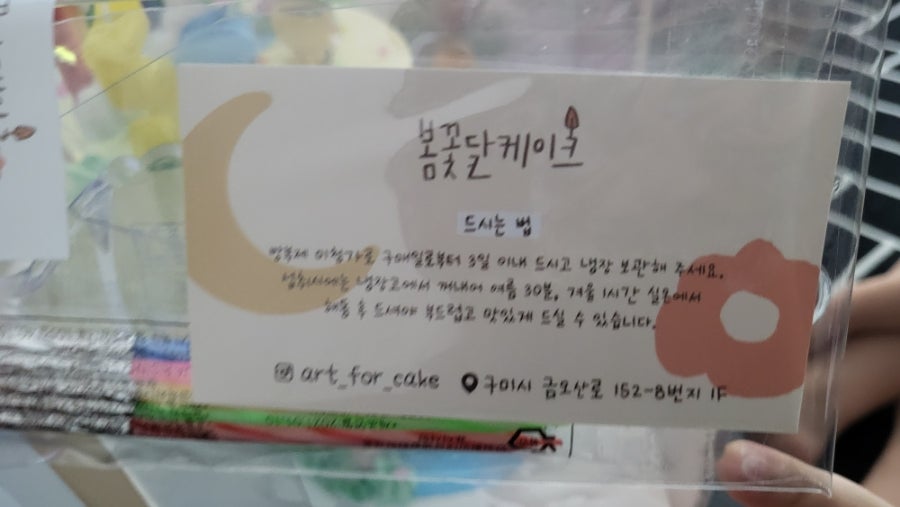 봄꽃달케이크
드시는 법
방부제 미첨가로 구매일로부터 3일 이내 드시고 냉장 보관해 주세요.
섭취시에는 냉장고에서 꺼내어 여름 30분, 겨울 1시간 실온에서
해동 후 드셔야 부드럽고 맛있게 드실 수 있습니다.
art_for_cake 구미시 금오산로 152-8번지 1F